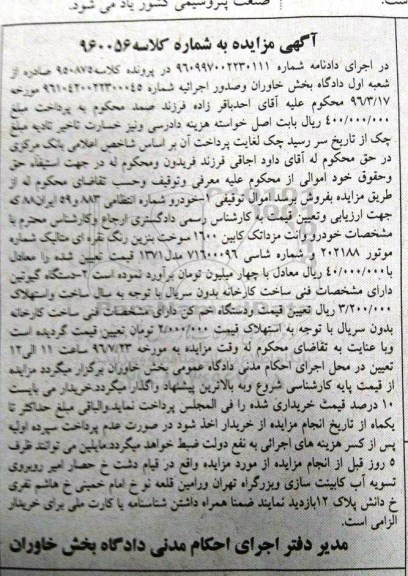 صنعت پتروشیمی کشور یاد می شود.
است.
آگهی مزایده به شماره کلاسه ۹۶۰۰۵۶
در اجرای دادنامه شماره ۹۶۰۹۹۷۰۰۲۲۳۰۱۱۱ در پرونده کلاسه۹۵۰۸۷۵ صادره از
شعبه اول دادگاه بخش خاوران وصدور اجرائیه شماره ۹۶۱۰۴۲۰۰۲۲۳۰۰۰۴۵ مورخه
۹۶/۳/۱۷ محکوم علیه آقای احدباقر زاده فرزند صمد محکوم به پرداخت مبلغ
۴۰۰/۰۰۰/۰۰۰ ریال بابت اصل خواسته هزینه دادرسی ونیز خسارت تاخیر تادیه مبلغ
چک از تاریخ سر رسید چک لغایت پرداخت آن بر اساس شاخص اعلامی بانک مرکزی
در حق محکوم له آقای داود اجاقی فرزند فریدون ومحکوم له در جهت استیفاء حق
وحقوق خود اموالی از محکوم علیه معرفی وتوقیف وحسب تقاضای محکوم له از
طریق مزایده بفروش برسد اموال توقیفی ۱-خودرو شماره انتظامی ۸۸۳ و۵۹ ایران۸۸ که
جهت ارزیابی وتعیین قیمت به کارشناس رسمی دادگستری ارجاع وکارشناس محترم با
مشخصات خودرو وانت مزداتک کابین ۱۶۰۰ سوخت بنزین رنگ نقره ای متالیک شماره
موتور ۲۰۲۱۸۸ و شماره شاسی ۷۱۶۰۰۰۹۶ مدل۱۳۷۱ قیمت تعیین شده را معادل
با۴۰/۰۰۰/۰۰۰ ریال معادل با چهار میلیون تومان برآورد نموده است ۲-دستگاه گیوتین
دارای مشخصات فنی ساخت کارخانه بدون سریال با توجه به سال ساخت واستهلاک
۳/۲۰۰/۰۰۰ ریال تعیین قیمت ودستگاه خم کن دارای مشخصات فنی ساخت کارخانه
بدون سریال با توجه به استهلاک قیمت ۲/۰۰۰/۰۰۰ تومان تعیین قیمت گردیده است
وبا عنایت به تقاضای محکوم له وقت مزایده به مورخه ۹۶/۷/۲۳ ساعت ۱۱ الی۱۲
تعیین در محل اجرای احکام مدنی دادگاه عمومی بخش خاوران برگزار میگردد مزایده
از قیمت پایه کارشناسی شروع وبه بالاترین پیشنهاد واگذار میگردد.خریدار می بایست
۱۰ درصد قیمت خریداری شده را فی المجلس پرداخت نمایدوالباقی مبلغ حداکثر تا
یکماه از تاریخ انجام مزایده از خریدار اخذ شود در صورت عدم پرداخت سپرده اولیه
پس از کسر هزینه های اجرائی به نفع دولت ضبط خواهد میگردد.مایلین می توانند ظرف
۵ روز قبل از انجام مزایده از مورد مزایده واقع در قیام دشت خ حصار امیر روبروی
تسویه آب کابینت سازی وبزرگراه تهران ورامین قلعه نو خ امام خمینی خ هاشم نفری
خ دانش پلاک ۱۲بازدید نمایند ضمنا همراه داشتن شناسنامه یا کارت ملی برای خریدار
الزامی است.
مدیر دفتر اجرای احکام مدنی دادگاه بخش خاوران